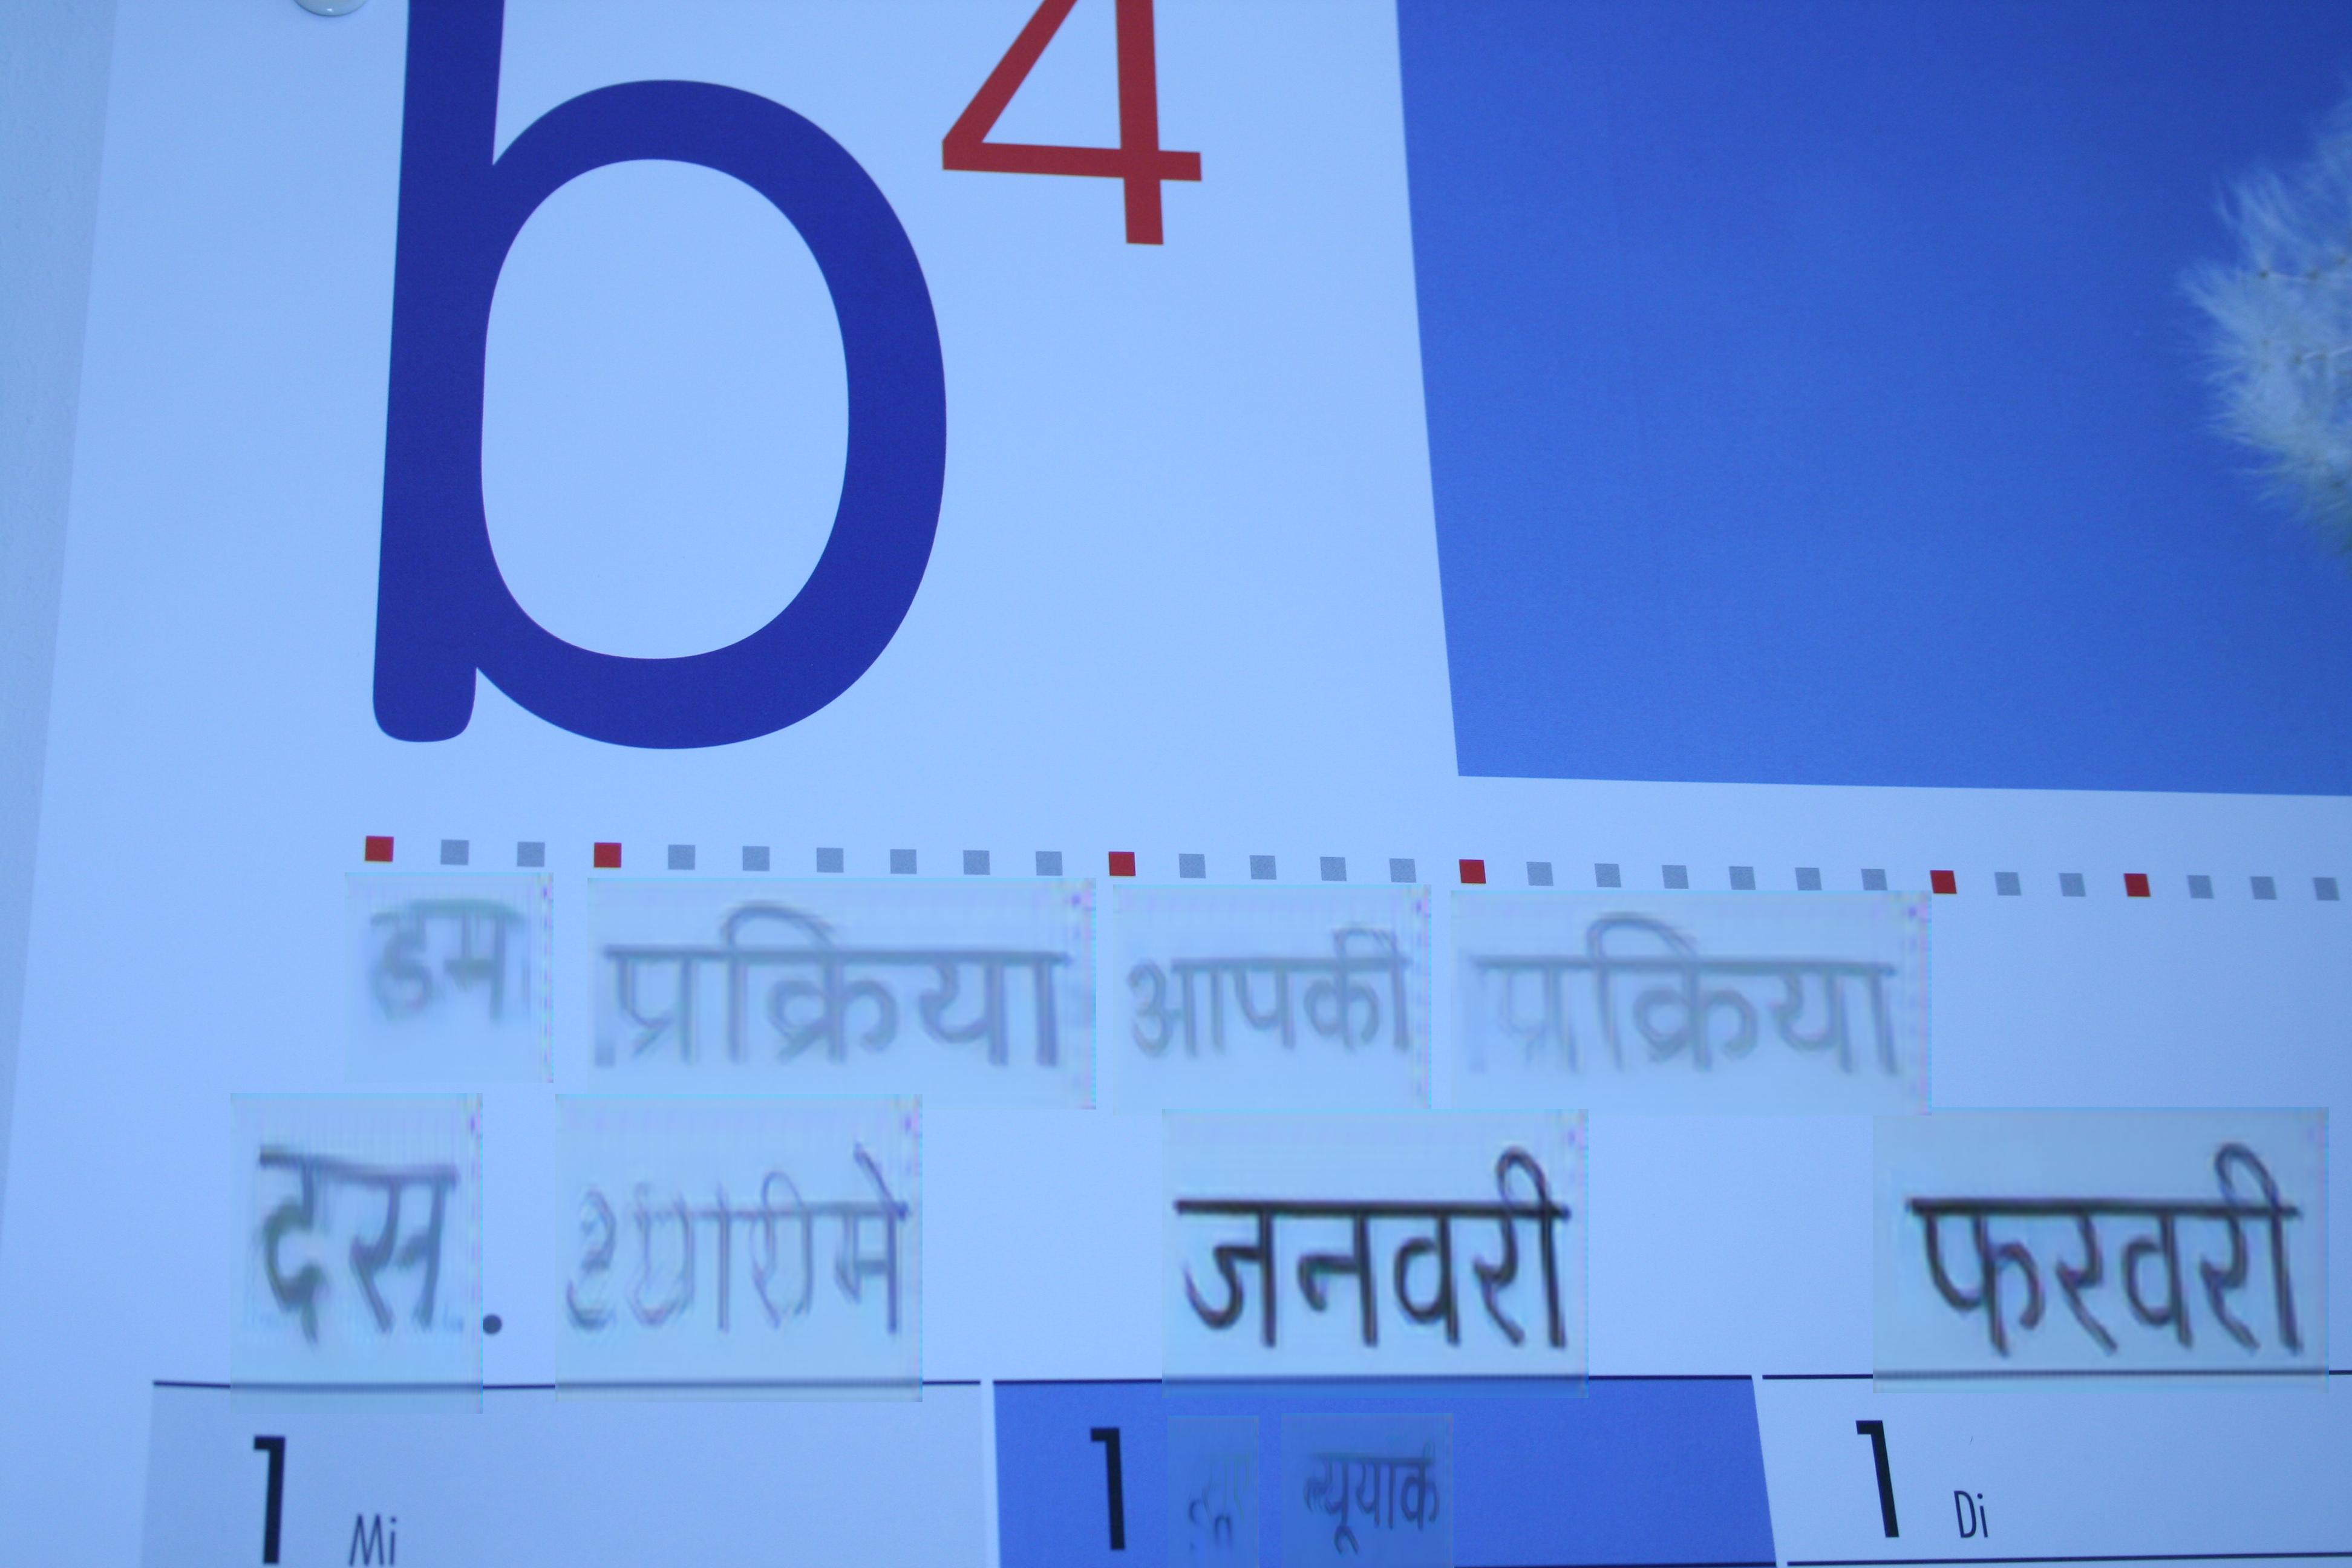 b4
डम प्रक्रिया आपकी प्रक्रिया
दस. जनवरी फरवरी
1 Mi 1 न्यूयार्क 1 Di